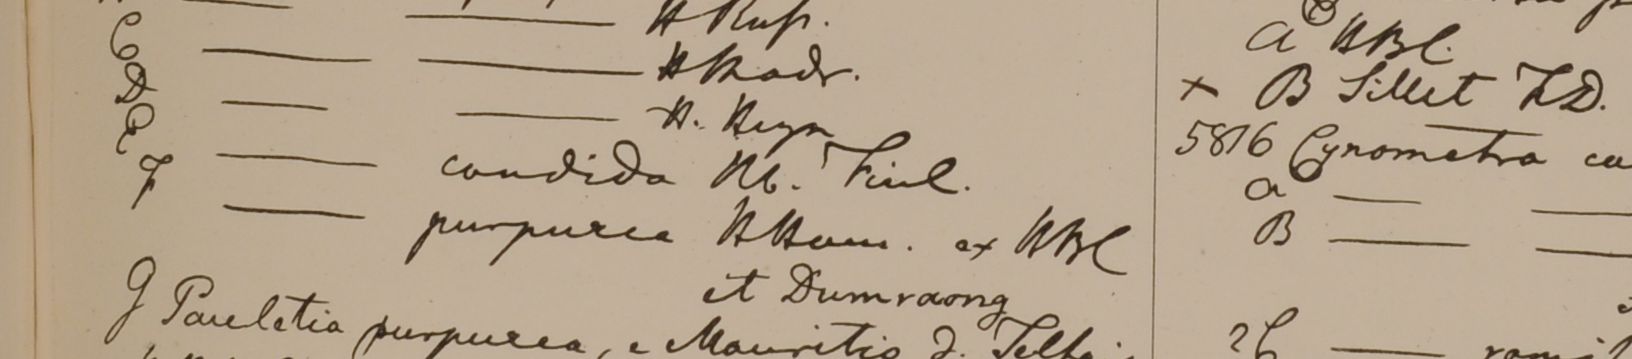 H Russ.
C ——— ——— H Madr.
D ——— ——— H. Heyn
E ——— candida Rb. Finl.
F ——— purpurea H Ham. ex HBC
et Dumraong
G Pauletia purpurea, e Mauritio D. Telfai
a HBC.
x B Sillet FD.
5816 Cynometra ca
a ——— ———
B ——— ———